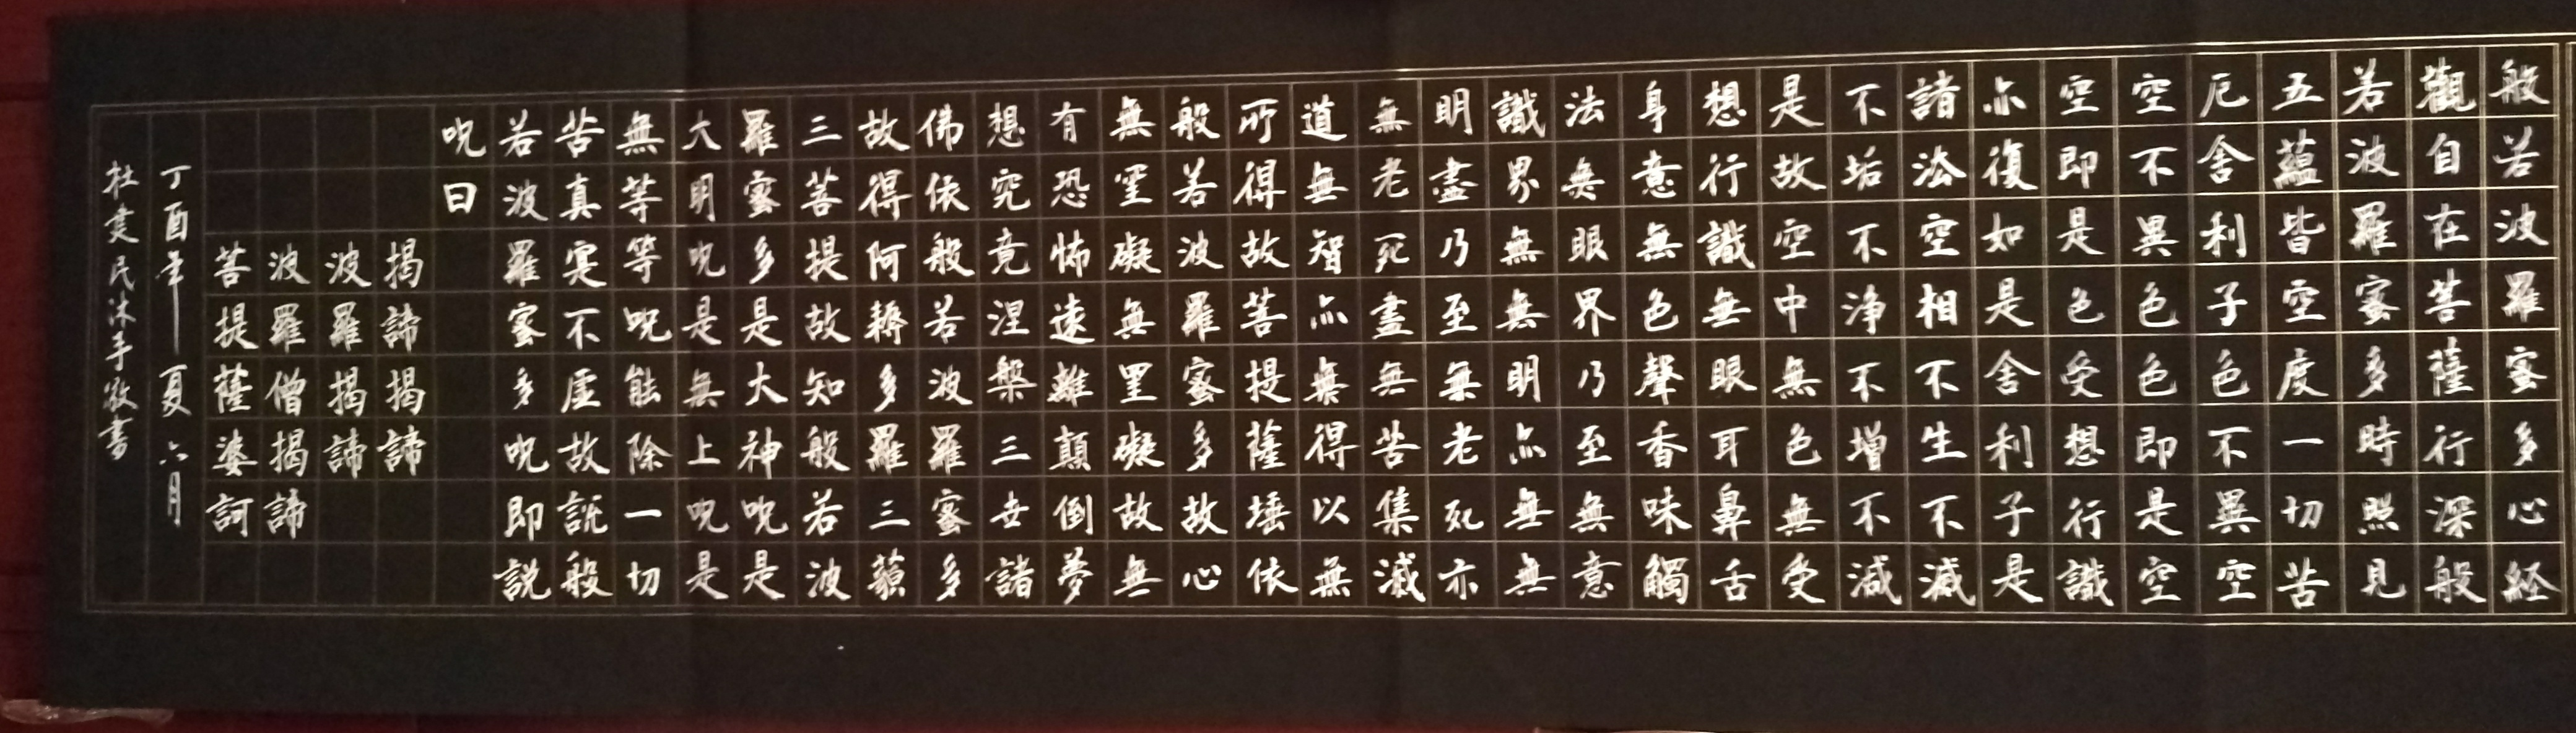 般若波羅蜜多心経
觀自在菩薩行深般
若波羅蜜多時照見
五蘊皆空度一切苦
厄舍利子色不異空
空不異色色即是空
空即是色受想行識
亦復如是舍利子是
諸法空相不生不滅
不垢不淨不增不減
是故空中無色無受
想行識無眼耳鼻舌
身意無色聲香味觸
法無眼界乃至無意
識界無無明亦無無
明盡乃至無老死亦
無老死盡無苦集滅
道無智亦無得以無
所得故菩提薩埵依
般若波羅蜜多故心
無罣礙無罣礙故無
有恐怖遠離顛倒夢
想究竟涅槃三世諸
佛依般若波羅蜜多
故得阿耨多羅三藐
三菩提故知般若波
羅蜜多是大神咒是
大明咒是無上咒是
無等等咒能除一切
苦真実不虛故說般
若波羅蜜多咒即説
咒曰
揭諦揭諦
波羅揭諦
波羅僧揭諦
菩提薩婆訶
丁酉年夏六月
杜建民沐手敬書